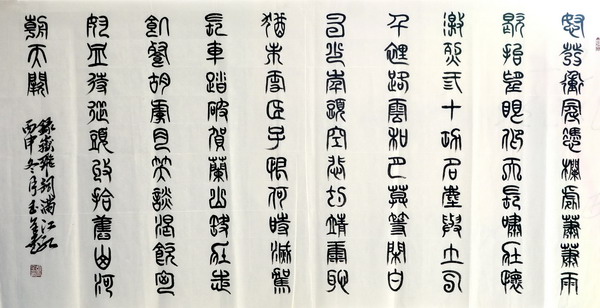 怒髮衝冠憑欄處蕭蕭雨
歇抬望眼仰天長嘯壯懷
激烈弎十功名塵與土八
千里路雲和月莫等閒白
了少年頭空悲切靖康恥
猶未雪臣子恨何時滅駕
長車踏破賀蘭山缺壯志
飢餐胡虜肉笑談渴飲匈
奴血待從頭收拾舊山河
朝天闕
錄嶽飛詞滿江紅
丙申冬月玉書